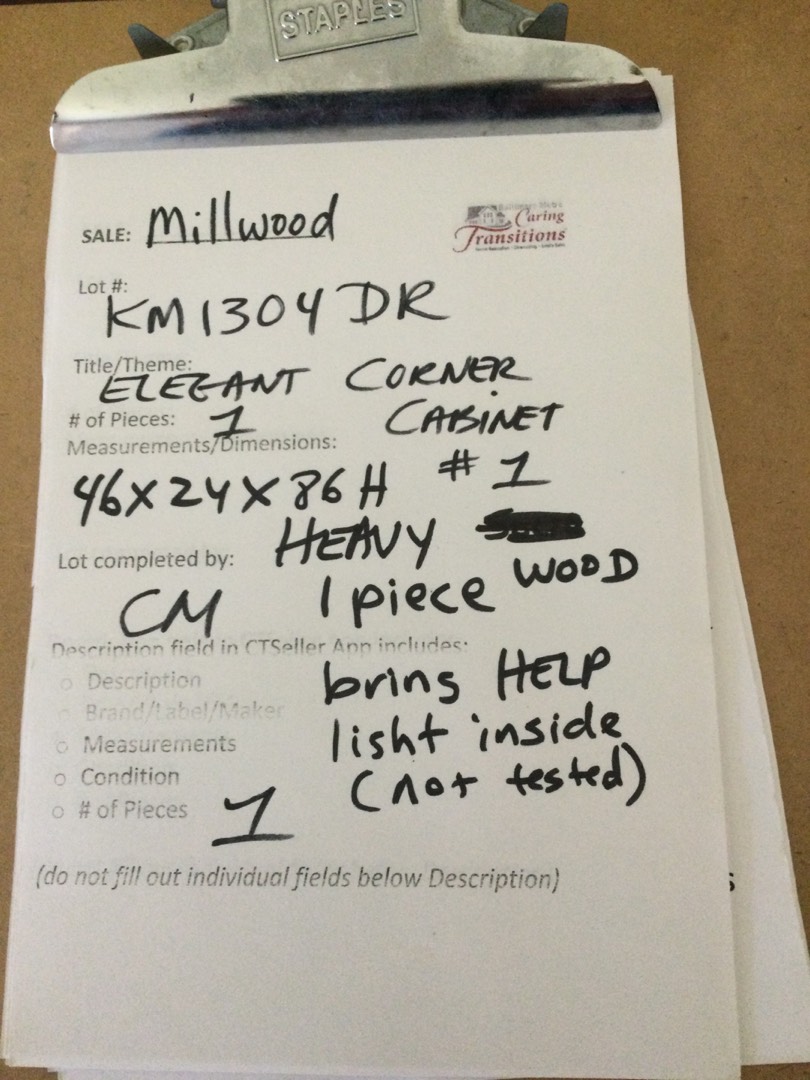 STAPLES
SALE: Millwood
Caring
Transitions
Lot #:
KM1304DR
Title/Theme:
ELEGANT CORNER
# of Pieces: 1 CABINET
Measurements/Dimensions:
46X24X86H #1
HEAVY
Lot completed by: WOOD
CM 1 piece
Description field in CTSeller App includes:
o Description bring HELP
o Brand/Label/Maker
o Measurements light inside
o Condition (not tested)
o # of Pieces 1
(do not fill out individual fields below Description)
s